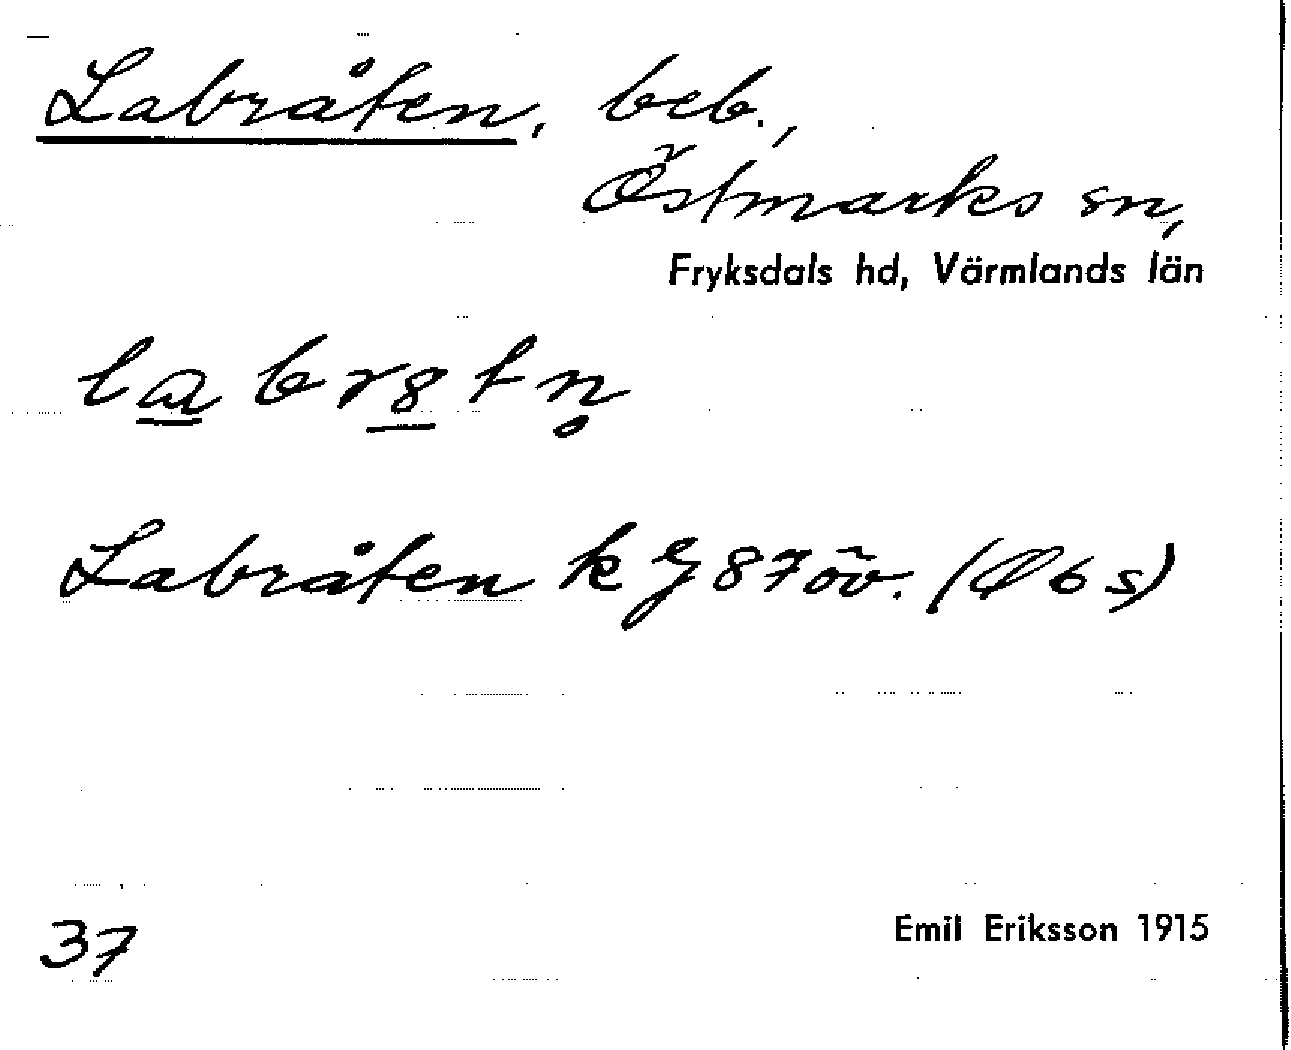 Labråten, beb.,
Östmarks sn,
Fryksdals hd, Värmlands län
labr8tn̥
Labråten k EJ 87 öv. (Ø b s)
37
Emil Eriksson 1915